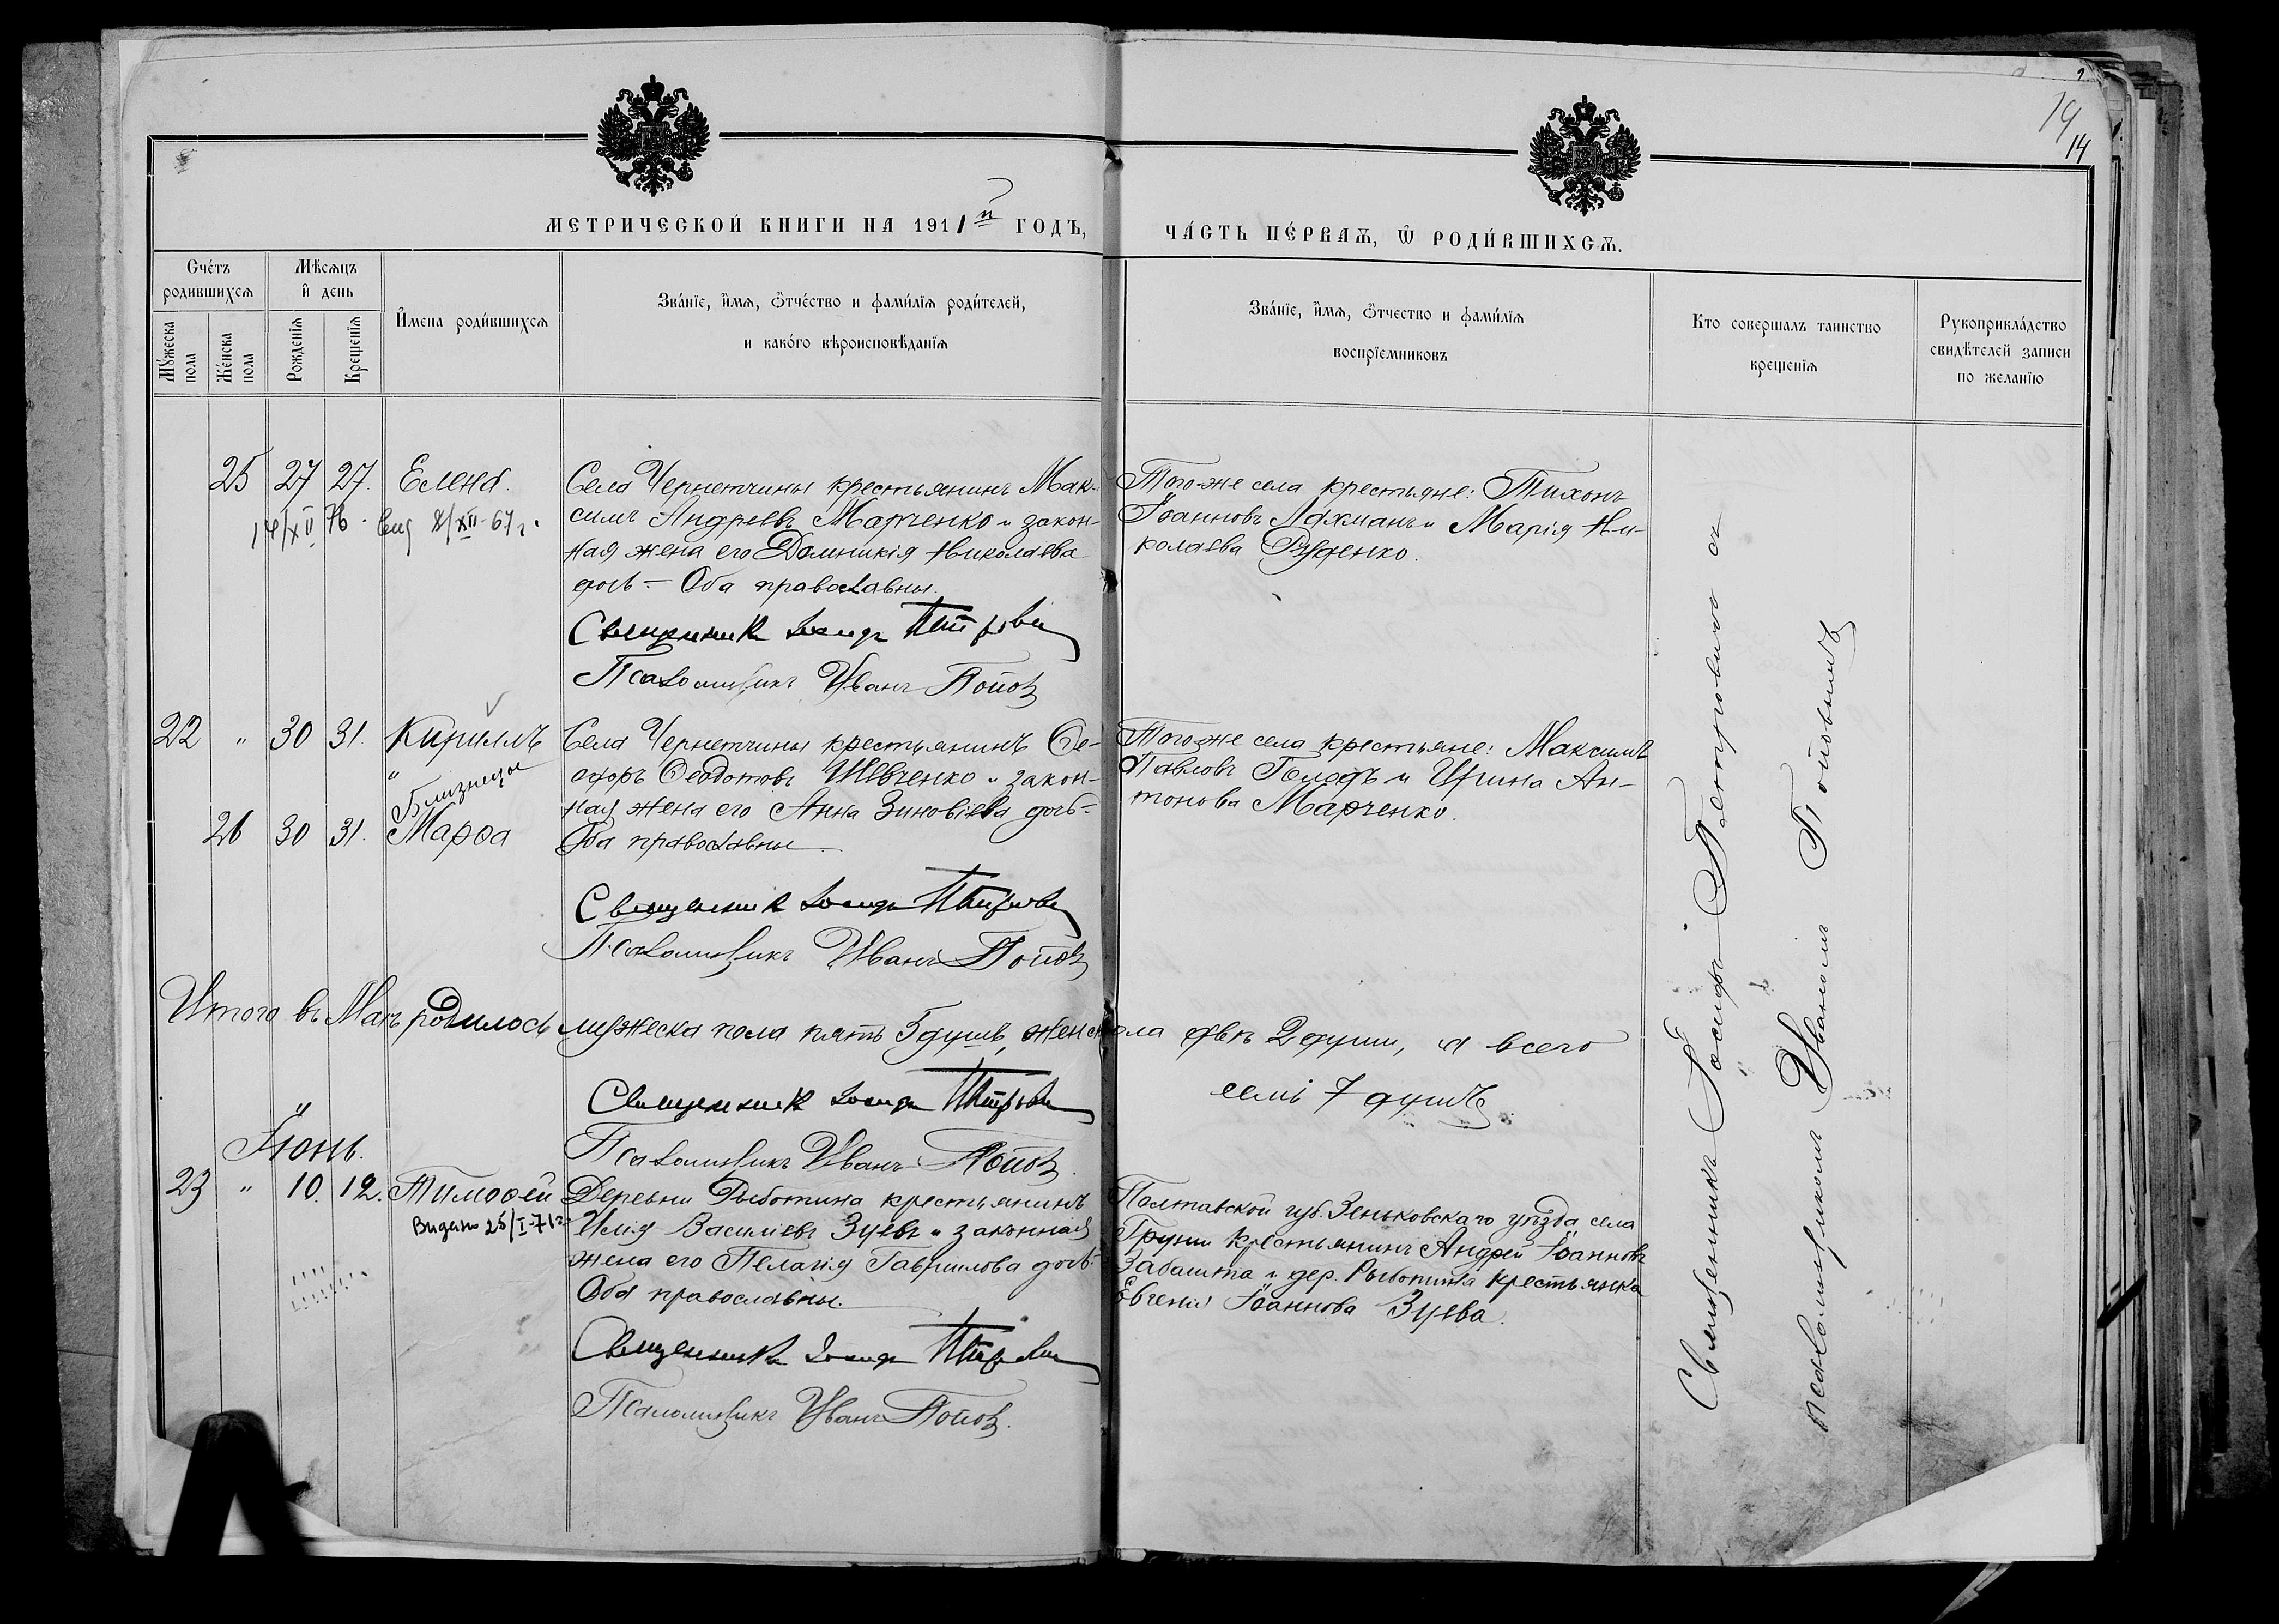 19
14
МЕТРИЧЕСКОЙ КНИГИ НА 1911й ГОДЪ,
ЧА́СТЬ ПЕ́РВАѦ, Ѡ҆ РОДИ́ВШИХСѦ.
Сче́тъ родившихсѧ
Мꙋ́жеска пола
Же́нска пола
Мѣсѧцъ и҆ день
Рожденїѧ
Крещенїѧ
И҆́мена роди́вшихсѧ
Зва́нїе, и҆́мѧ, ѻ҆́тчество и фами́лїѧ роди́телей,
и како́го вѣроисповѣ́данїѧ
Зва́нїе, и҆́мѧ, ѻ҆́тчество и фами́лїѧ
воспрїемниковъ
Кто совершалъ таинство
крещенїѧ
Рукоприкла́дство
свидѣ́телей записи
по желанїю
25 27 27. Елена.
14/XII 76. Вид 8/XII-67г.
Села Чернетчины крестьянинъ Мак-
симъ Андреевъ Марченко и закон-
ная жена его Домникія Николаева
дочь – Оба православны.
Священникъ Іосифъ Петровичъ
Псаломщикъ Иванъ Попов
Того-же села крестьяне: Тихонъ
Іоанновъ Лахманъ и Марія Ни-
колаева Руденко.
22 " 30 31. Кириллъ
" Близнецы
26 30 31. Марѳа
Села Чернетчины крестьянинъ Ѳе-
одоръ Ѳеодотовъ Шевченко и закон-
ная жена его Анна Зиновіева дочь-
Оба православны
Священникъ Іосифъ Петровичъ
Псаломщикъ Иванъ Попов
Того-же села крестьяне: Максимъ
Павловъ Голодъ и Ирина Ан-
тонова Марченко.
Итого въ Маѣ родилось мужеска пола пять 5 душъ, женск. пола двѣ 2 души, а всего
семь 7 душъ.
Священникъ Іосифъ Петровичъ
Псаломщикъ Иванъ Попов
Іюнь.
23 " 10. 12. Тимоѳей
Видано 25/I-71г.
Деревни Рыботина крестьянинъ
Илія Василіевъ Зуевъ и законная
жена его Пелагія Гавриилова дочь.
Оба православны.
Священникъ Іосифъ Петровичъ
Псаломщикъ Иванъ Попов.
Полтавской губ. Зеньковскаго уѣзда села
Груни крестьянинъ Андрей Іоанновъ
Забашта и дер. Рыботина крестьянка
Евгенія Іоаннова Зуева.
Священникъ Іосифъ Петровичъ съ
псаломщикомъ Иваномъ Поповымъ